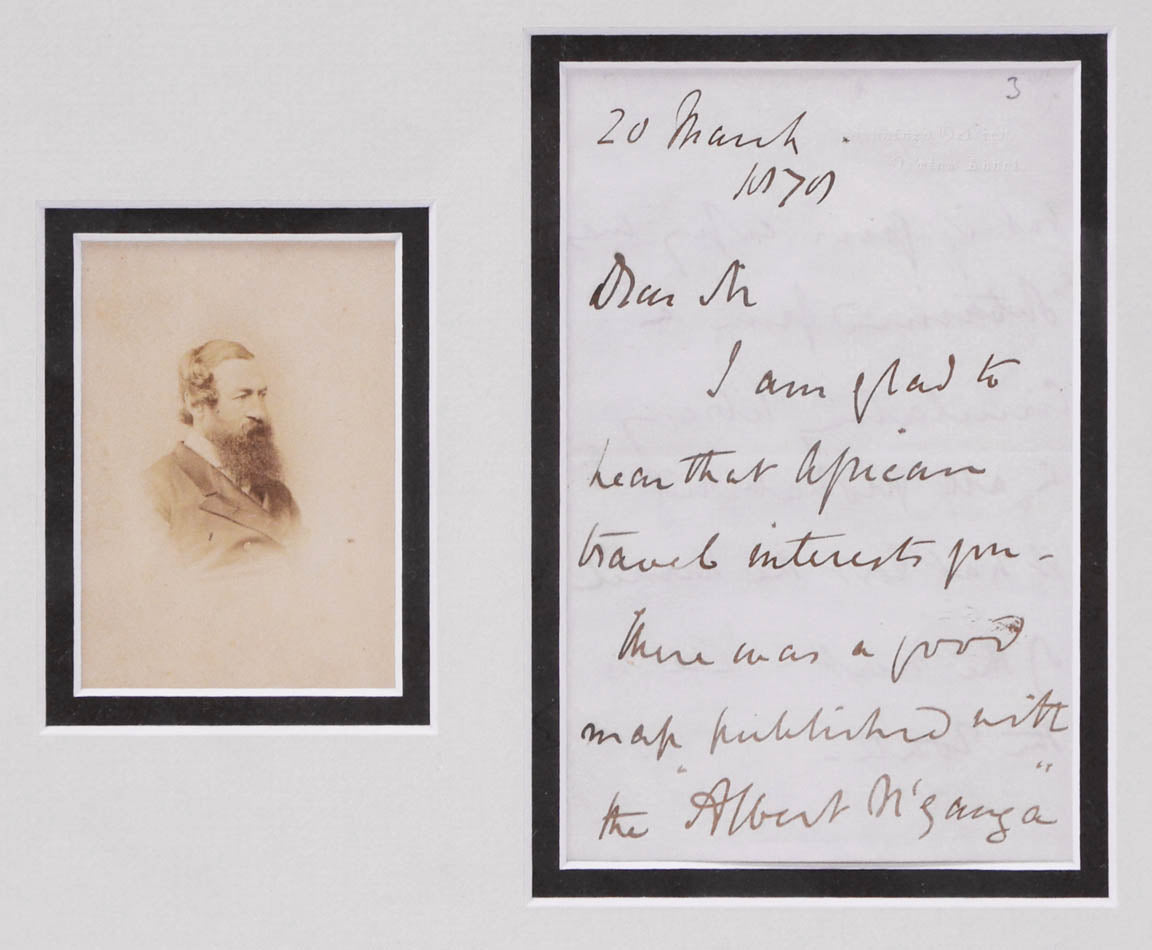 3
20 March.
1878
Dear Sir
I am glad to
hear that African
travel interests you -
There was a good
map published with
the "Albert N'yanza"